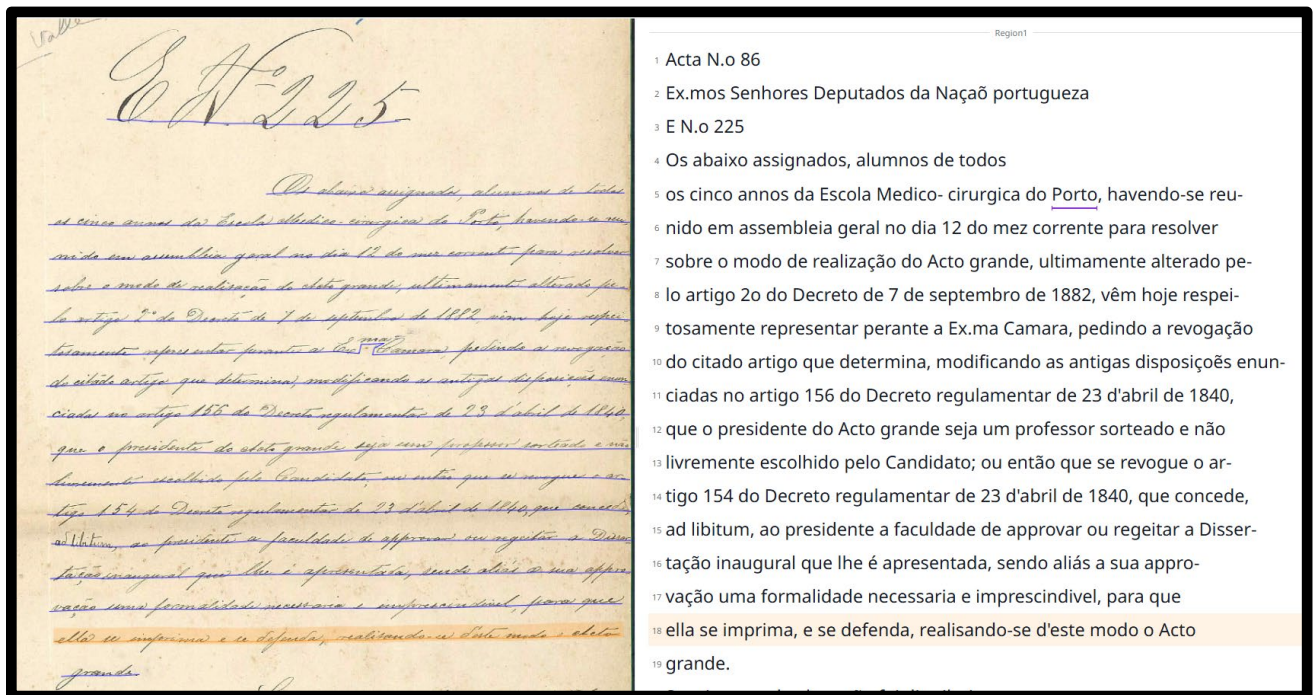 Valle
E Nº 225
Os abaixo assignados, alumnos de todos
os cinco annos da Escola Medico-cirurgica do Porto, havendo-se reu-
nido em assembleia geral no dia 12 do mez corrente para resolver
sobre o modo de realisação do Acto grande, ultimamente alterado pe-
lo artigo 2º do Decreto de 7 de septembro de 1882, vêm hoje respei-
tosamente representar perante a Ex.ma Camara, pedindo a revogação
do citado artigo que determina, modificando as antigas disposições enun-
ciadas no artigo 156 do Decreto regulamentar de 23 d'abril de 1840,
que o presidente do Acto grande seja um professor sorteado e não
livremente escolhido pelo Candidato, ou então que se revogue o ar-
tigo 154 do Decreto regulamentar de 23 d'abril de 1840, que concede,
ad libitum, ao presidente a faculdade de approvar ou regeitar a Disser-
tação inaugural que lhe é apresentada, sendo aliás a sua appro-
vação uma formalidade necessaria e imprescindivel, para que
ella se imprima e se defenda, realisando-se d'este modo o Acto
grande.
Region1
1 Acta N.o 86
2 Ex.mos Senhores Deputados da Naçaõ portugueza
3 E N.o 225
4 Os abaixo assignados, alumnos de todos
5 os cinco annos da Escola Medico- cirurgica do Porto, havendo-se reu-
6 nido em assembleia geral no dia 12 do mez corrente para resolver
7 sobre o modo de realização do Acto grande, ultimamente alterado pe-
8 lo artigo 2o do Decreto de 7 de septembro de 1882, vêm hoje respei-
9 tosamente representar perante a Ex.ma Camara, pedindo a revogação
10 do citado artigo que determina, modificando as antigas disposiçoẽs enun-
11 ciadas no artigo 156 do Decreto regulamentar de 23 d'abril de 1840,
12 que o presidente do Acto grande seja um professor sorteado e não
13 livremente escolhido pelo Candidato; ou então que se revogue o ar-
14 tigo 154 do Decreto regulamentar de 23 d'abril de 1840, que concede,
15 ad libitum, ao presidente a faculdade de approvar ou regeitar a Disser-
16 tação inaugural que lhe é apresentada, sendo aliás a sua appro-
17 vação uma formalidade necessaria e imprescindivel, para que
18 ella se imprima, e se defenda, realisando-se d'este modo o Acto
19 grande.